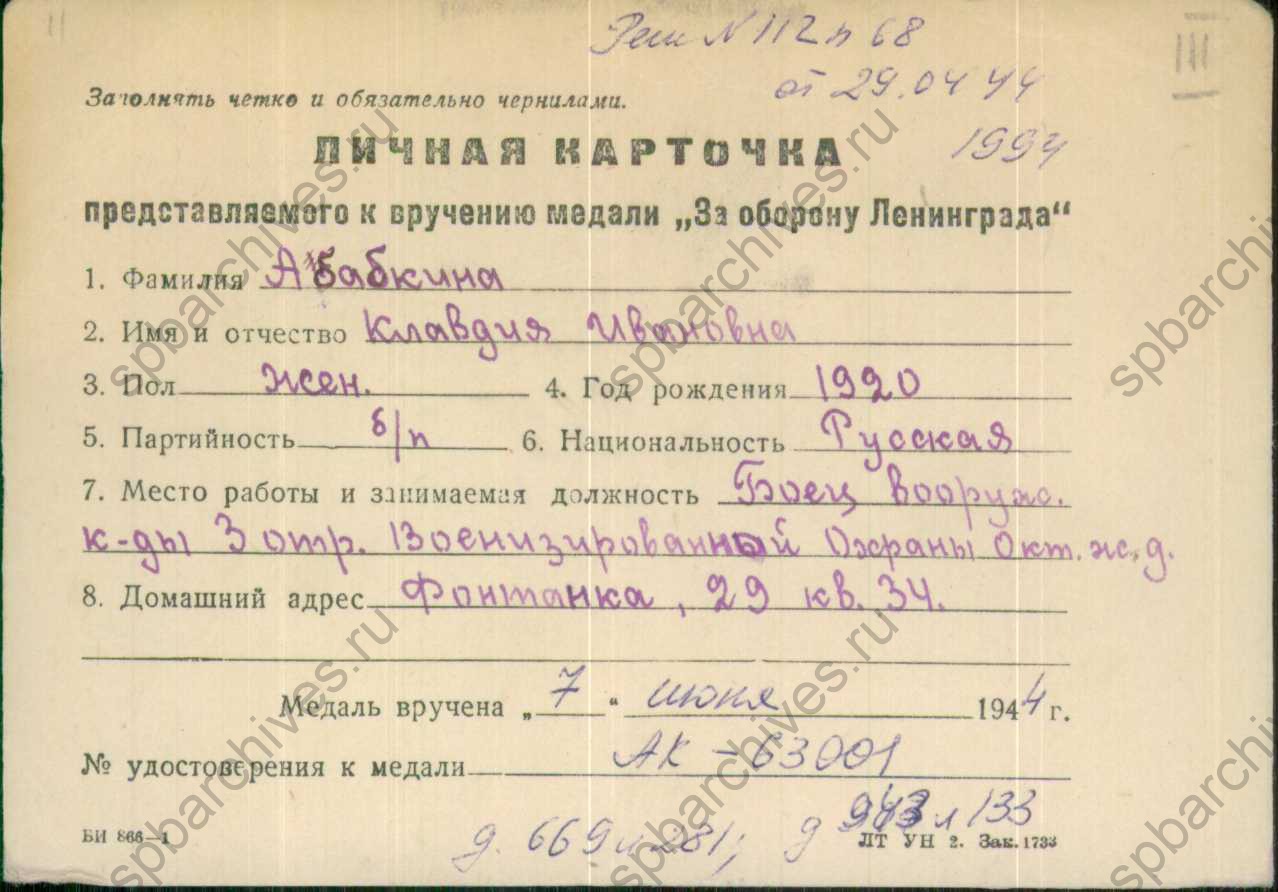 Реш N 112 п 68
от 29.04 44
III
Заполнять четко и обязательно чернилами.
ЛИЧНАЯ КАРТОЧКА
1994
представляемого к вручению медали „За оборону Ленинграда“
1. Фамилия Абабкина
2. Имя и отчество Клавдия Ивановна
3. Пол жен. 4. Год рождения 1920
5. Партийность б/п 6. Национальность Русская
7. Место работы и занимаемая должность Боец вооруж.
к-ды 3 отр. Военизированной Охраны Окт. ж. д.
8. Домашний адрес Фонтанка, 29 кв. 34.
Медаль вручена „ 7 “ июня 1944 г.
№ удостоверения к медали АК - 63001
д. 669 л 281; д 943 л 133
БИ 866—1 ЛТ УН 2. Зак. 1733
spbarchives.ru
spbarchives.ru
spbarchives.ru
spbarchives.ru
spbarchives.ru
spbarchives.ru